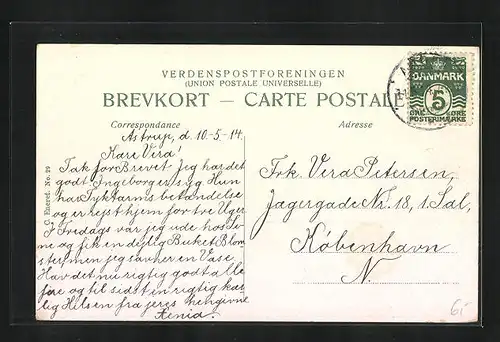 VERDENSPOSTFORENINGEN
(UNION POSTALE UNIVERSELLE)
BREVKORT — CARTE POSTALE
DANMARK
5
ØRE ØRE
POSTFRIMÆRKE
Correspondance
Adresse
Astrup, d. 10-5-14.
Kære Vera!
Tak for Brevet. Jeg har det
godt. Ingeborg er syg Hun
har Tyktarms betændelse
og er rejst hjem for tre Uger
I Fredags var jeg ude hos
og fik en dejlig Buket Blom
ster, men jeg savner en Vase.
Hav det nu rigtig godt alle
fire og til sidst en rigtig kær
lig Hilsen fra jeres hengivne
Xenia.
Frk. Vera Petersen,
Jagergade Nr. 18, 1. Sal,
København
N.
Eneret. No. 29